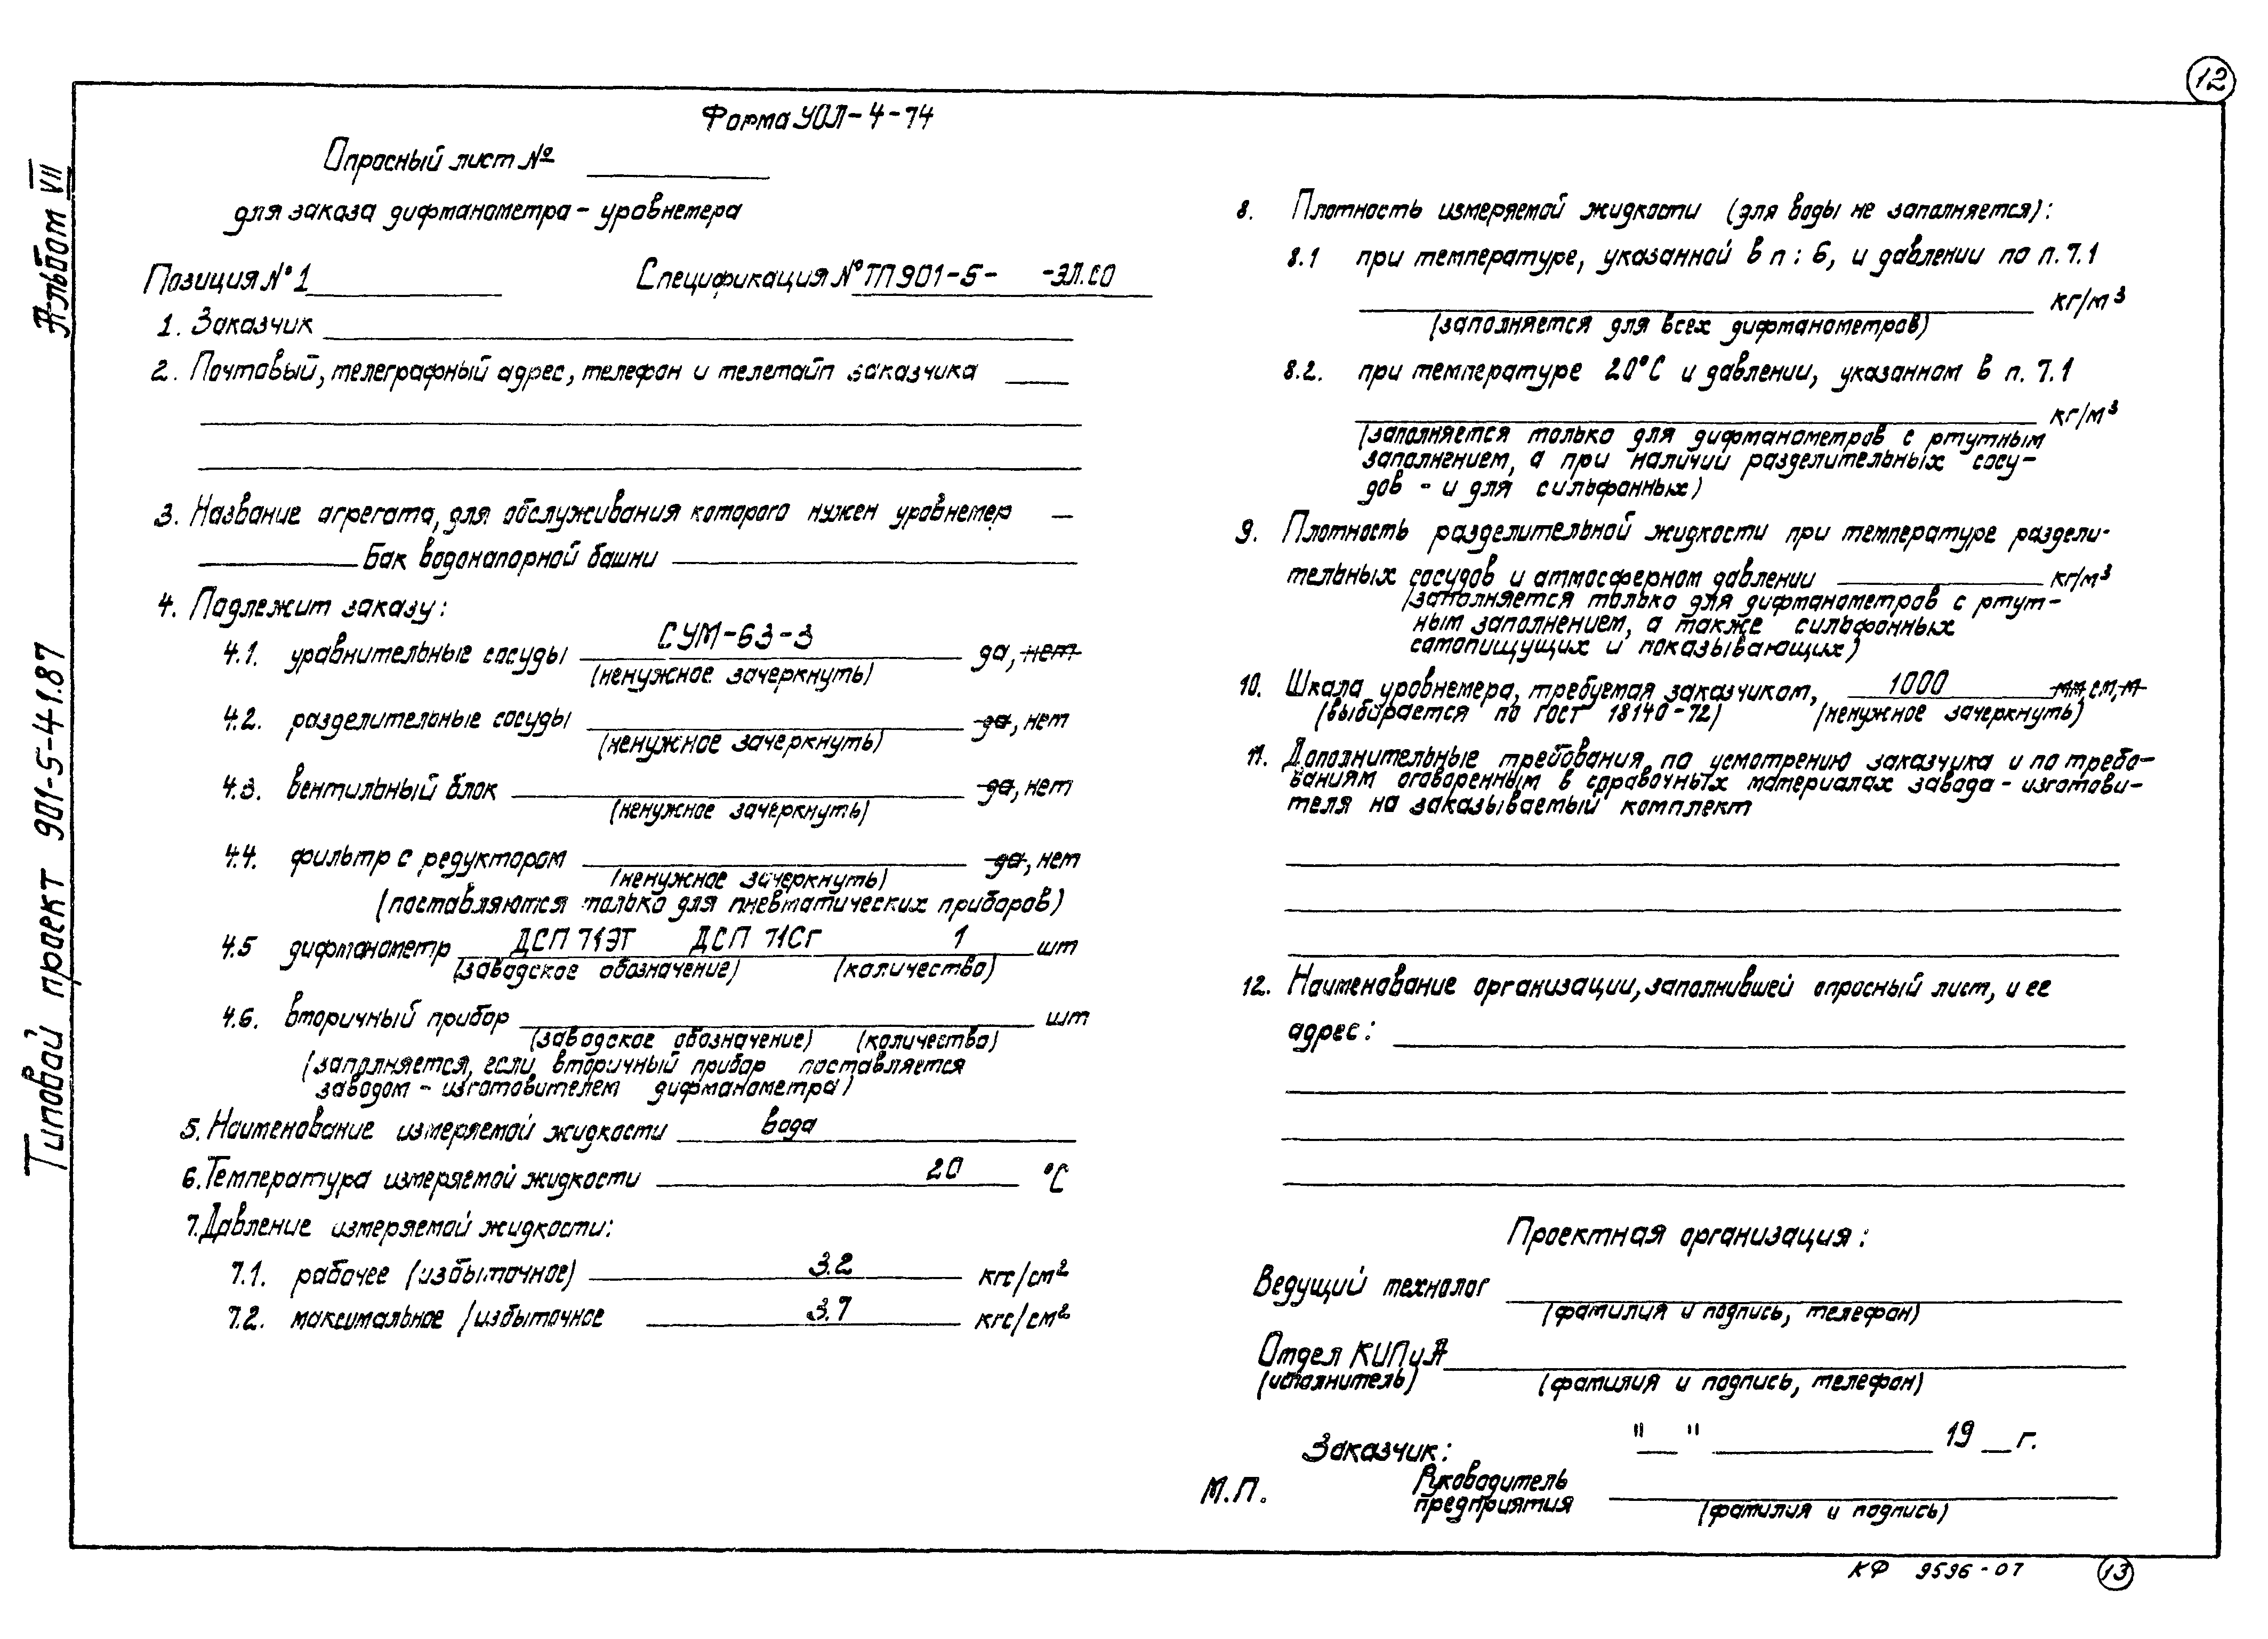 12
Альбом VII
Типовой проект 901-5-41.87
Форма УОЛ-4-74
Опросный лист №
для заказа дифманометра - уровнемера
Позиция № 1 Спецификация № ТП 901-5- -ЭЛ.СО
1. Заказчик
2. Почтовый, телеграфный адрес, телефон и телетайп заказчика
3. Название агрегата, для обслуживания которого нужен уровнемер
Бак водонапорной башни
4. Подлежит заказу:
4.1. уравнительные сосуды СУМ-63-3 да, нет
(ненужное зачеркнуть)
4.2. разделительные сосуды да, нет
(ненужное зачеркнуть)
4.3. вентильный блок да, нет
(ненужное зачеркнуть)
4.4. фильтр с редуктором да, нет
(ненужное зачеркнуть)
(поставляются только для пневматических приборов)
4.5 дифманометр ДСП 71ЭТ ДСП 71Сг 1 шт
(заводское обозначение) (количество)
4.6. вторичный прибор шт
(заводское обозначение) (количество)
(заполняется, если вторичный прибор поставляется
заводом - изготовителем дифманометра)
5. Наименование измеряемой жидкости вода
6. Температура измеряемой жидкости 20 °С
7. Давление измеряемой жидкости:
7.1. рабочее (избыточное) 3.2 кгс/см²
7.2. максимальное /избыточное 3.7 кгс/см²
8. Плотность измеряемой жидкости (для воды не заполняется):
8.1 при температуре, указанной в п: 6, и давлении по п. 7.1
кг/м³
(заполняется для всех дифманометров)
8.2. при температуре 20°С и давлении, указанном в п. 7.1
кг/м³
(заполняется только для дифманометров с ртутным
заполнением, а при наличии разделительных сосу-
дов - и для сильфонных)
9. Плотность разделительной жидкости при температуре раздели-
тельных сосудов и атмосферном давлении кг/м³
(заполняется только для дифманометров с ртут-
ным заполнением, а также сильфонных
самопищущих и показывающих)
10. Шкала уровнемера, требуемая заказчиком, 1000 мм, см, м
(выбирается по ГОСТ 18140-72) (ненужное зачеркнуть)
11. Дополнительные требования по усмотрению заказчика и по требо-
ваниям оговоренным в справочных материалах завода - изготови-
теля на заказываемый комплект
12. Наименование организации, заполнившей опросный лист, и ее
адрес:
Проектная организация:
Ведущий технолог
(фамилия и подпись, телефон)
Отдел КИПиА
(исполнитель) (фамилия и подпись, телефон)
" " 19 г.
Заказчик:
М.П. Руководитель
предприятия
(фамилия и подпись)
КФ 9596-07 13